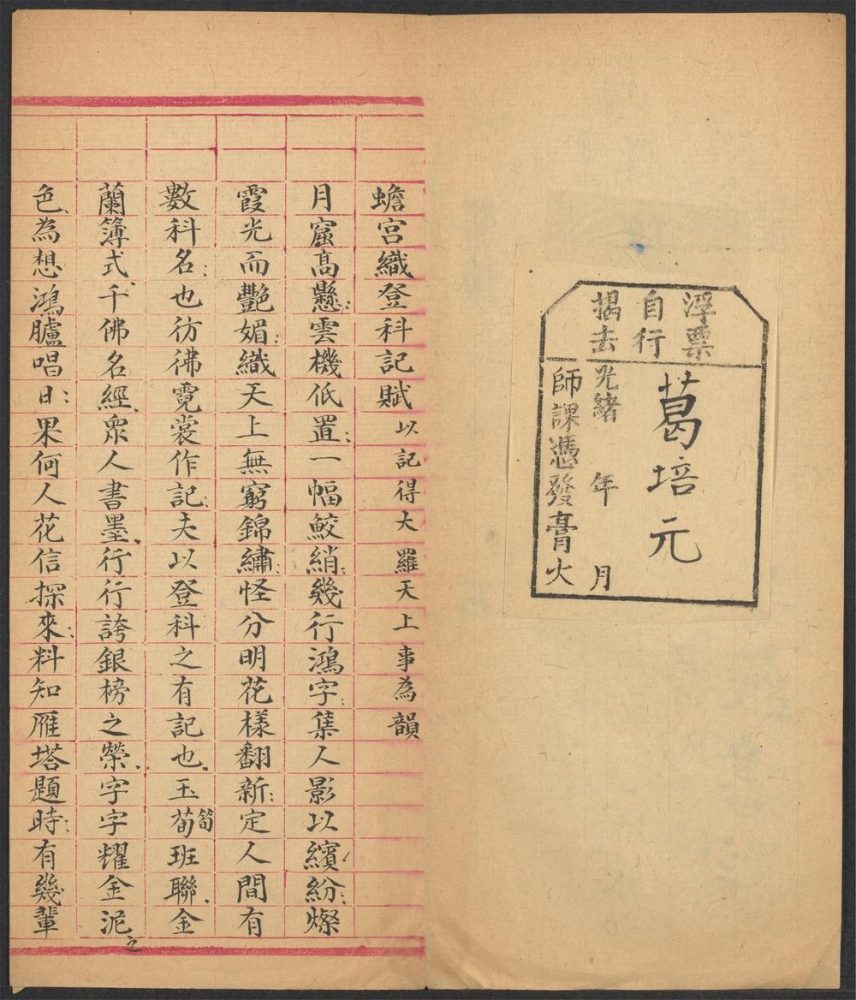 浮票
自行
揭去
葛培元
光緒　年　月
師課憑發膏火
蟾宮織登科記賦以記得大羅天上事為韻
月窟高懸雲機低置一幅鮫綃幾行鴻字集人影以繽紛燦
霞光而艷媚織天上無窮錦繡怪分明花樣翻新定人間有
數科名也彷彿霓裳作記夫以登科之有記也玉荀筍班聯金
蘭簿式千佛名經眾人書墨行行誇銀榜之榮字字耀金泥之
色為想鴻臚唱日果何人花信探來料知雁塔題時有幾輩